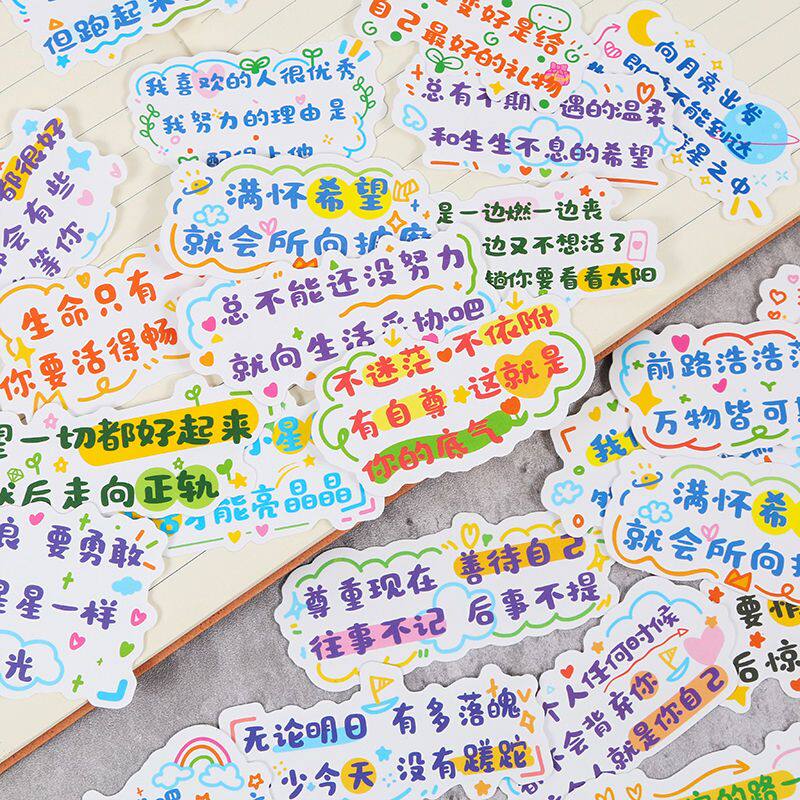 但跑起来
我喜欢的人很优秀
我努力的理由是
变好是给
自己最好的礼物
向月亮出发
不能到达
星之中
总有不期
遇的温柔
和生生不息的希望
都很好
会有些
等你
满怀希望
就会所向披靡
是一边燃一边丧
边又不想活了
你要看看太阳
生命只有一
你要活得畅
总不能还没努力
就向生活妥协吧
不迷茫 不依附
有自尊 这就是
你的底气
前路浩浩荡
万物皆可
一切都好起来
后走向正轨
小星
才能亮晶晶
满怀希
就会所向披
浪 要勇敢
星星一样
光
尊重现在 善待自己
往事不记 后事不提
个人任何时候
会背弃你
人就是你自己
要
后惊
无论明日 有多落魄
少今天 没有蹉跎
的路一